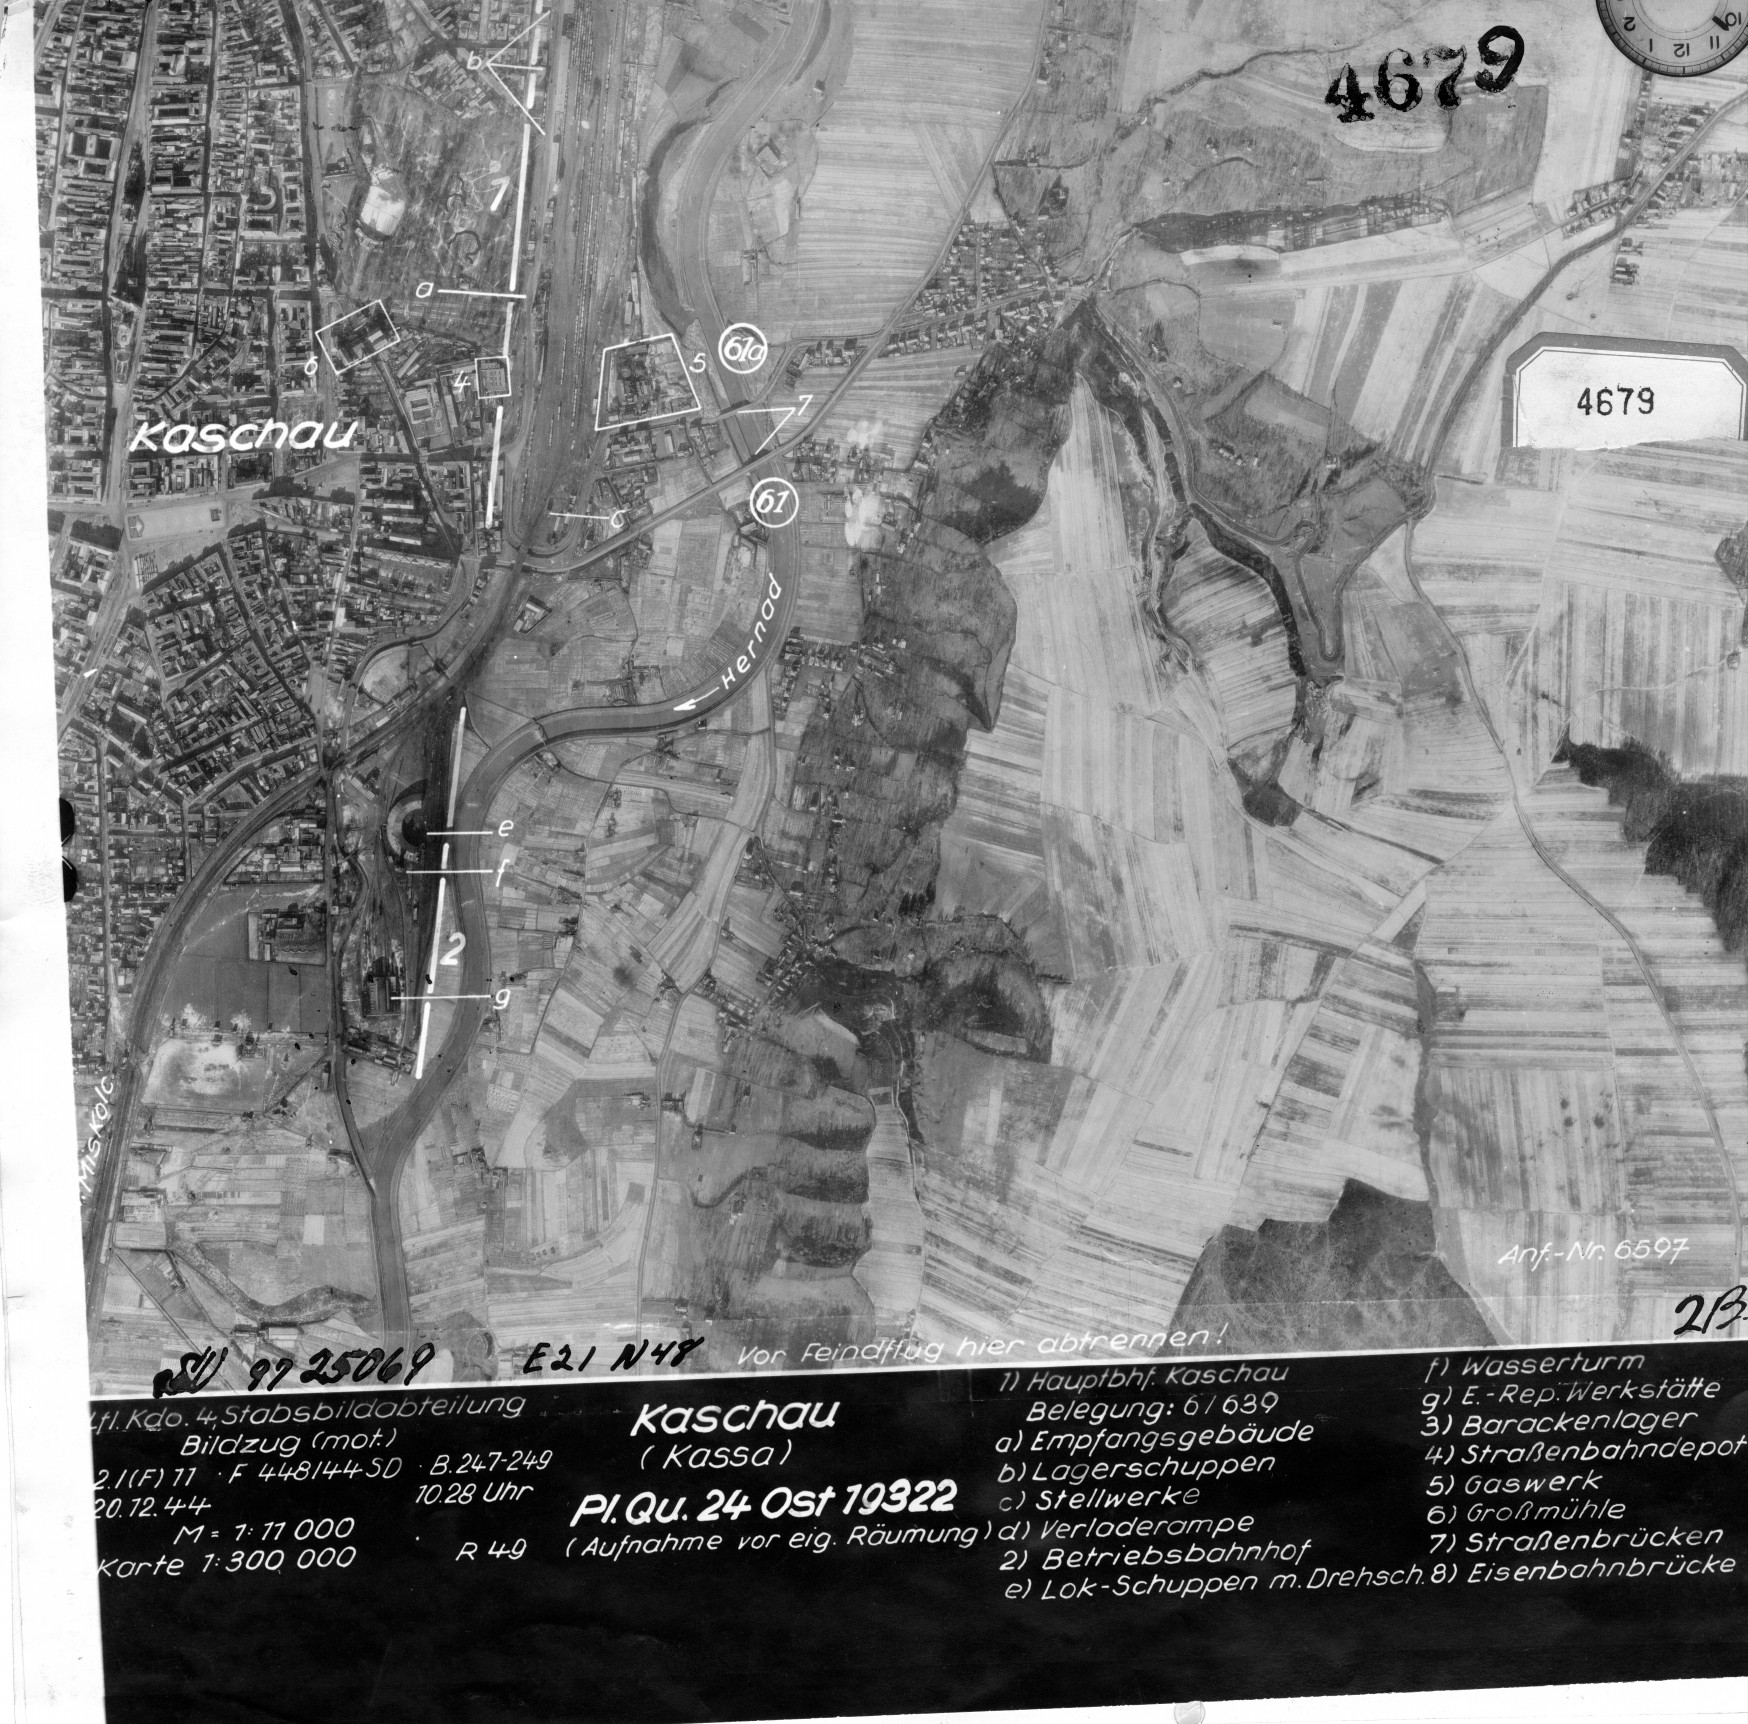 10
11
12
1
2
4679
b
1
a
6
4
5
61a
7
4679
Kaschau
61
c
Hernad
e
f
2
g
Miskolc
Anf.-Nr. 6597
2B
97 25069
E21 N48
Vor Feindflug hier abtrennen!
Lfl. Kdo. 4, Stabsbildabteilung
Bildzug (mot.)
2./(F) 11 · F 448/44 SD · B. 247-249
20.12.44 10.28 Uhr
M = 1:11 000
Karte 1:300 000 R 49
Kaschau
(Kassa)
Pl. Qu. 24 Ost 19322
(Aufnahme vor eig. Räumung)
1) Hauptbhf. Kaschau
Belegung: 6/639
a) Empfangsgebäude
b) Lagerschuppen
c) Stellwerke
d) Verladerampe
2) Betriebsbahnhof
e) Lok-Schuppen m. Drehsch.
f) Wasserturm
g) E.-Rep. Werkstätte
3) Barackenlager
4) Straßenbahndepot
5) Gaswerk
6) Großmühle
7) Straßenbrücken
8) Eisenbahnbrücke